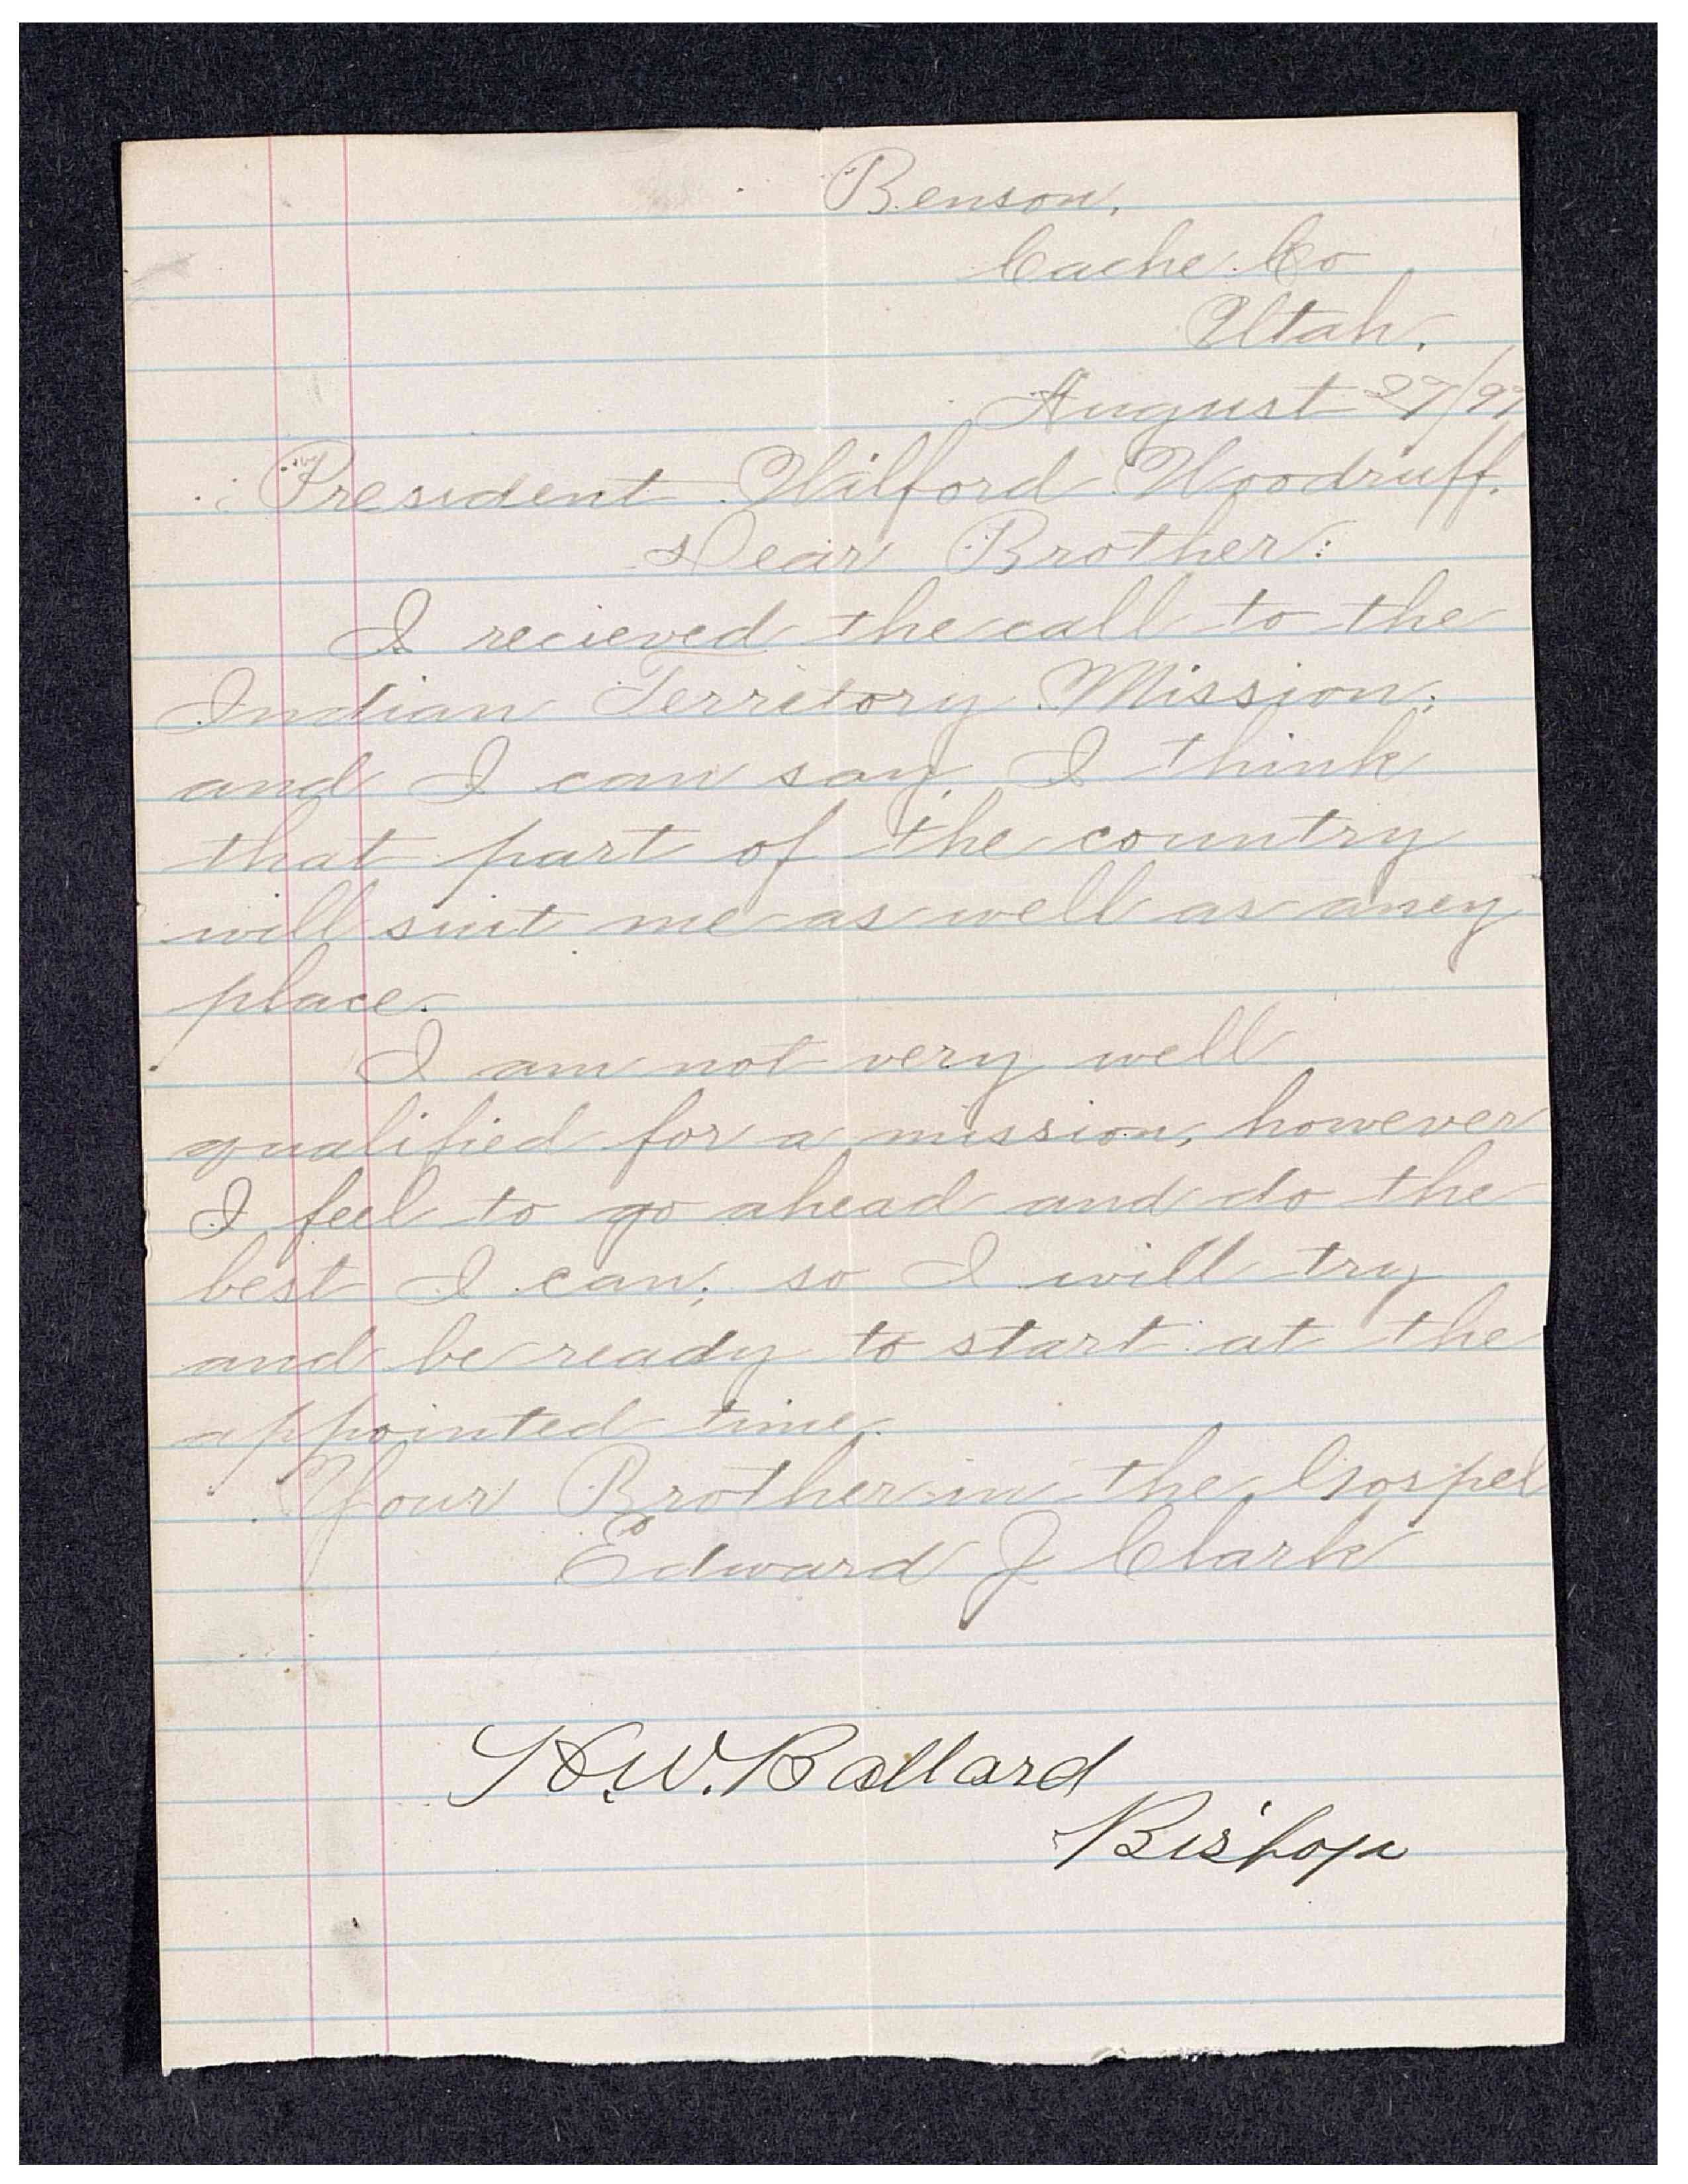 Benson,
Cache Co
Utah.
August 27/97
President Wilford Woodruff.
Dear Brother:
I recieved the call to the
Indian Territory Mission;
and I can say I think
that part of the country
will suit me as well as aney
place.
I am not very well
qualified for a mission, however
I feel to go ahead and do the
best I can; so I will try
and be ready to start at the
appointed time.
Your Brother in the Gospel
Edward J Clark
H.W. Ballard
Bishop